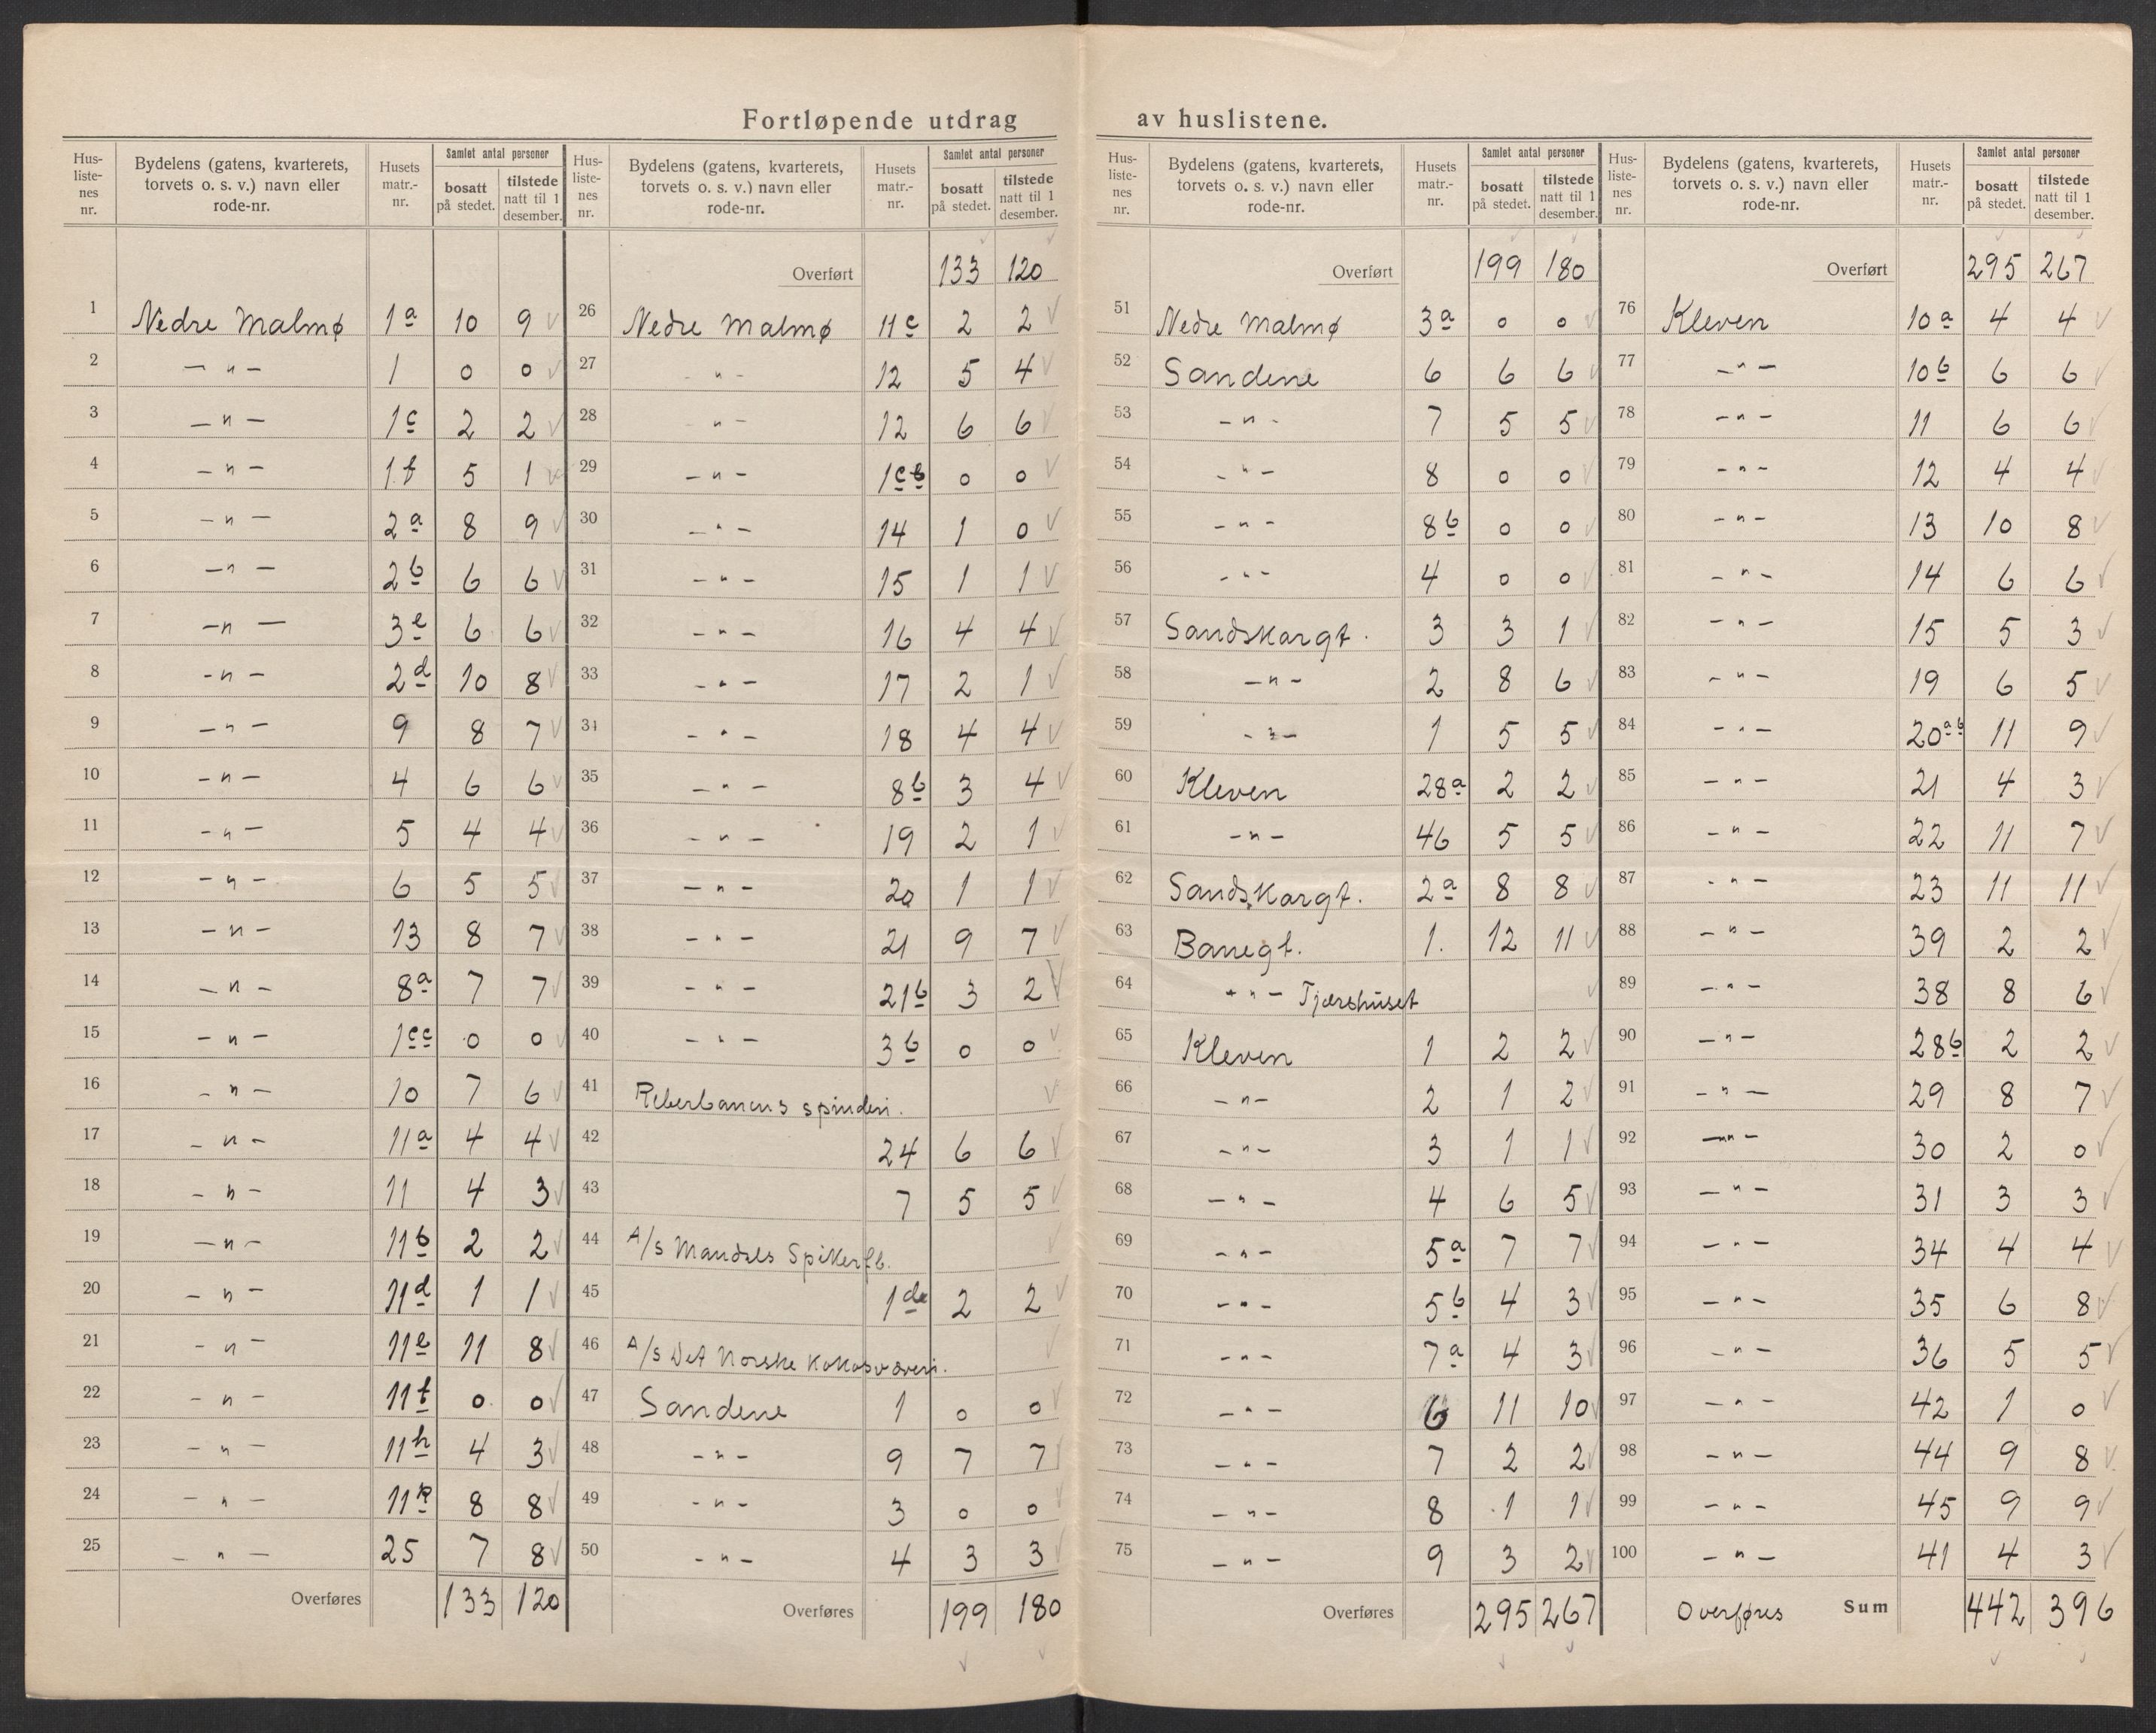 Fortløpende utdrag av huslistene.
Hus-listenes nr. | Bydelens (gatens, kvarterets, torvets o. s. v.) navn eller rode-nr. | Husets matr.-nr. | Samlet antal personer | bosatt på stedet. | tilstede natt til 1 desember.
1 Nedre Malmø 1a 10 9
2 — " — 1 0 0
3 — " — 1c 2 2
4 — " — 1f 5 1
5 — " — 2a 8 9
6 — " — 2b 6 6
7 — " — 3e 6 6
8 — " — 2d 10 8
9 — " — 9 8 7
10 — " — 4 6 6
11 — " — 5 4 4
12 — " — 6 5 5
13 — " — 13 8 7
14 — " — 8a 7 7
15 — " — 1cc 0 0
16 — " — 10 7 6
17 — " — 11a 4 4
18 — " — 11 4 3
19 — " — 11b 2 2
20 — " — 11d 1 1
21 — " — 11e 11 8
22 — " — 11f 0 0
23 — " — 11h 4 3
24 — " — 11k 8 8
25 — " — 25 7 8
Overføres 133 120
Hus-listenes nr. | Bydelens (gatens, kvarterets, torvets o. s. v.) navn eller rode-nr. | Husets matr.-nr. | Samlet antal personer | bosatt på stedet. | tilstede natt til 1 desember.
Overført 133 120
26 Nedre Malmø 11c 2 2
27 - " - 12 5 4
28 - " - 12 6 6
29 — " — 1cb 0 0
30 — " — 14 1 0
31 — " — 15 1 1
32 — " — 16 4 4
33 — " — 17 2 1
34 — " — 18 4 4
35 — " — 8b 3 4
36 — " — 19 2 1
37 — " — 20 1 1
38 — " — 21 9 7
39 — " — 21b 3 2
40 — " — 3b 0 0
41 Reberbanens spinderi.
42 24 6 6
43 7 5 5
44 A/s Mandals Spikerfb.
45 1de 2 2
46 A/s Det Norske Kokosvæveri.
47 Sandene 1 0 0
48 — " — 9 7 7
49 — " — 3 0 0
50 — " — 4 3 3
Overføres 199 180
Hus-listenes nr. | Bydelens (gatens, kvarterets, torvets o. s. v.) navn eller rode-nr. | Husets matr.-nr. | Samlet antal personer | bosatt på stedet. | tilstede natt til 1 desember.
Overført 199 180
51 Nedre Malmø 3a 0 0
52 Sandene 6 6 6
53 — " — 7 5 5
54 — " — 8 0 0
55 — " — 8b 0 0
56 — " — 4 0 0
57 Sandskargt. 3 3 1
58 — " — 2 8 6
59 — " — 1 5 5
60 Kleven 28a 2 2
61 — " — 46 5 5
62 Sandskargt. 2a 8 8
63 Banegt. 1. 12 11
64 — " — Tjærehuset
65 Kleven 1 2 2
66 — " — 2 1 2
67 — " — 3 1 1
68 — " — 4 6 5
69 — " — 5a 7 7
70 — " — 5b 4 3
71 — " — 7a 4 3
72 — " — 6 11 10
73 — " — 7 2 2
74 — " — 8 1 1
75 — " — 9 3 2
Overføres 295 267
Hus-listenes nr. | Bydelens (gatens, kvarterets, torvets o. s. v.) navn eller rode-nr. | Husets matr.-nr. | Samlet antal personer | bosatt på stedet. | tilstede natt til 1 desember.
Overført 295 267
76 Kleven 10a 4 4
77 — " — 10b 6 6
78 — " — 11 6 6
79 — " — 12 4 4
80 — " — 13 10 8
81 — " — 14 6 6
82 — " — 15 5 3
83 — " — 19 6 5
84 — " — 20ab 11 9
85 — " — 21 4 3
86 — " — 22 11 7
87 — " — 23 11 11
88 — " — 39 2 2
89 — " — 38 8 6
90 — " — 28b 2 2
91 — " — 29 8 7
92 — " — 30 2 0
93 — " — 31 3 3
94 — " — 34 4 4
95 — " — 35 6 8
96 — " — 36 5 5
97 — " — 42 1 0
98 — " — 44 9 8
99 — " — 45 9 9
100 — " — 41 4 3
Overføres Sum 442 396